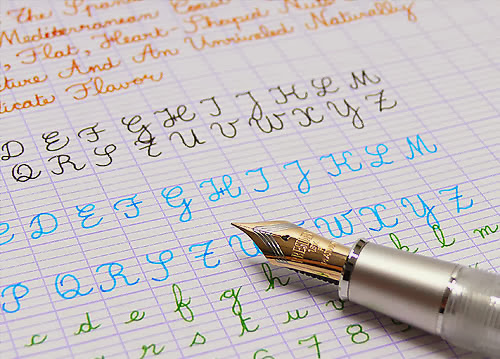 The Spani
Mediterranean Coast
, Flat, Heart-Shaped Nut
ture And An Unrivaled Naturally
licate Flavor
D E F G H I J K L M
Q R S T U V W X Y Z
E D E F G H I J K L M
P Q R S T U V W X Y Z
c d e f g h k l m
r s t u v
6 7 8